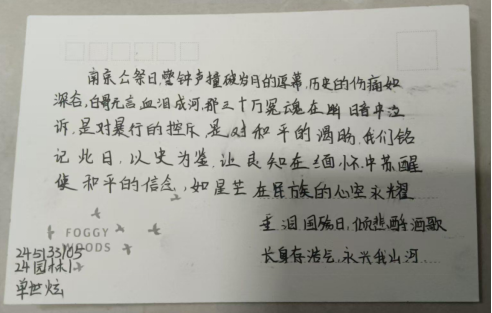 南京公祭日,警钟声撞破岁月的帷幕,历史的伤痛如
深谷,白骨无言,血泪成河,那三十万冤魂在幽暗中泣
诉,是对暴行的控斥,是对和平的渴盼,我们铭
记此日,以史为鉴,让良知在缅怀中苏醒
使和平的信念,如星芒在民族的心空永耀
垂泪国殇日,倾悲酹酒歌
长身存浩气,永兴我山河...
FOGGY
WOODS
245133105
24园林1
单世炫